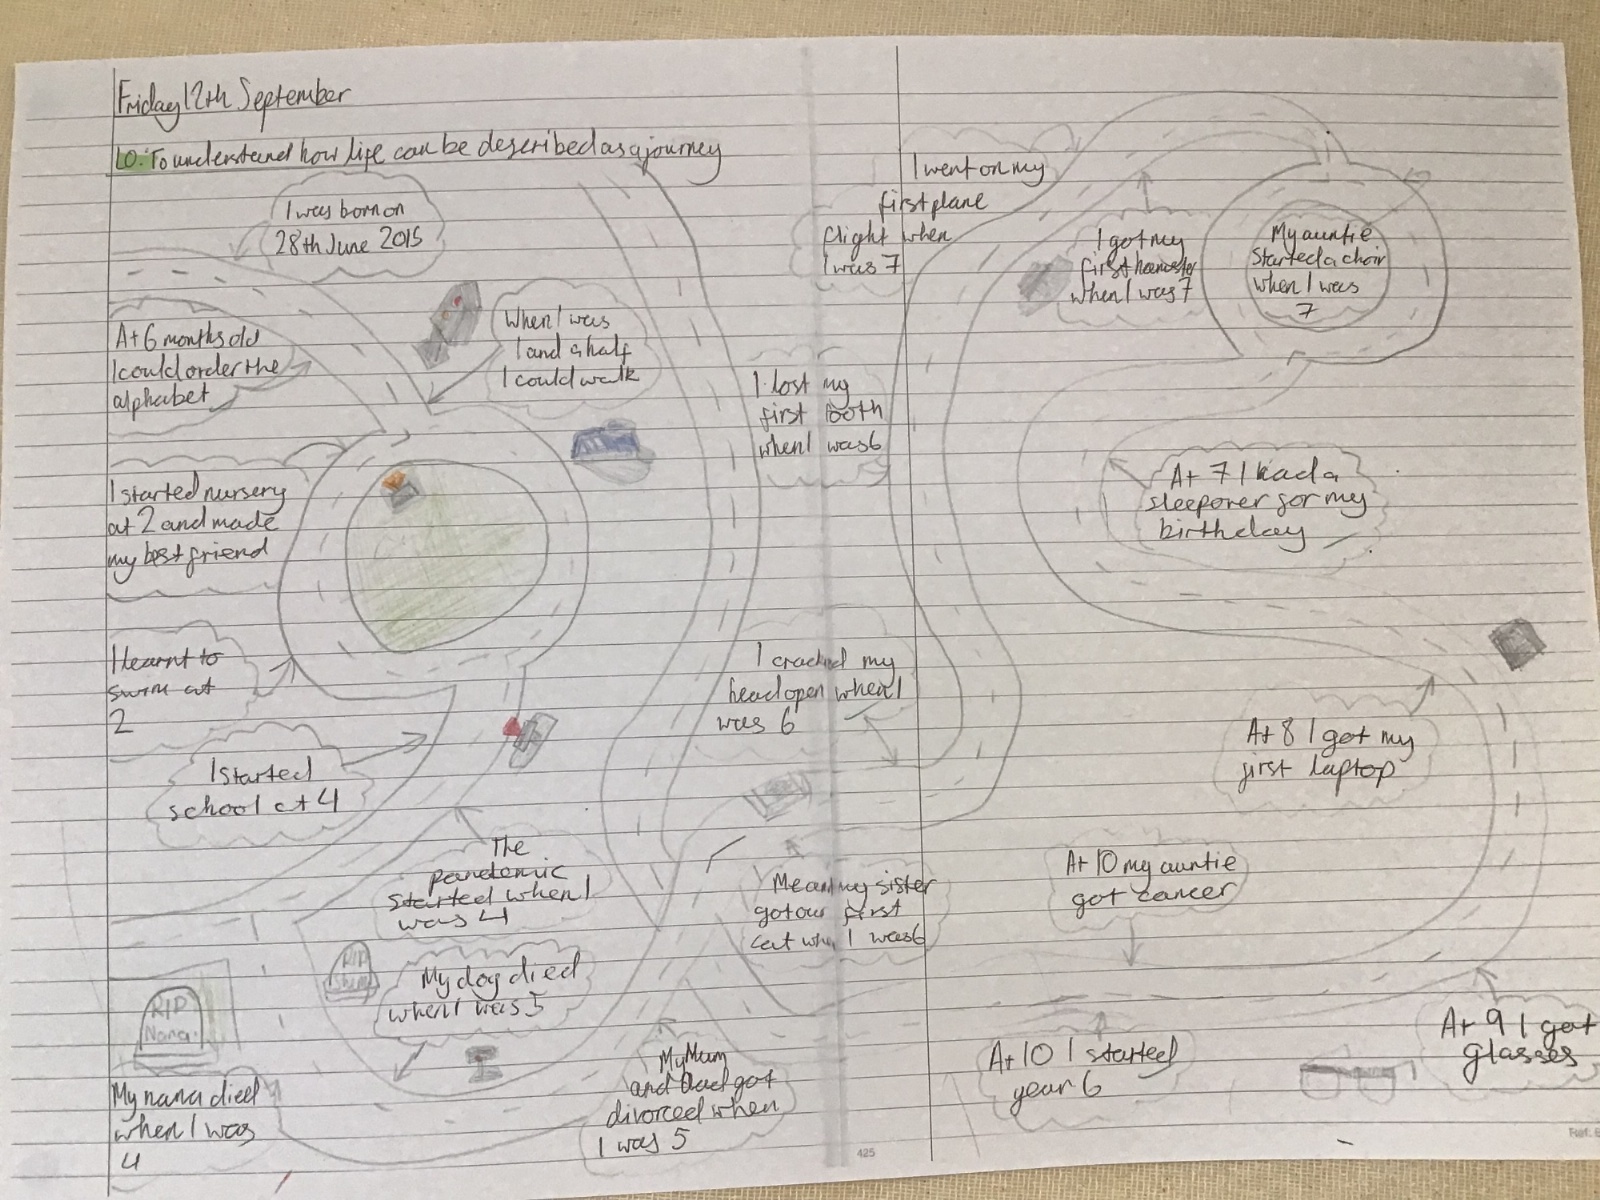 Friday 12th September
LO: To understand how life can be described as a journey
I was born on
28th June 2015
At 6 months old
I could order the
alphabet
When I was
1 and a half
I could walk
I started nursery
at 2 and made
my best friend
I learnt to
swim at
2
I started
school at 4
The
pandemic
started when I
was 4
RIP
Nana
My nana died
when I was
4
RIP
My dog died
when I was 5
My Mum
and Dad got
divorced when
I was 5
Me and my sister
got our first
cat when I was 6
I cracked my
head open when I
was 6
I lost my
first tooth
when I was 6
I went on my
first plane
flight when
I was 7
I got my
first hamster
when I was 7
My auntie
started a choir
when I was
7
At 7 I had a
sleepover for my
birthday
At 8 I got my
first laptop
At 9 I got
glasses
At 10 my auntie
got cancer
At 10 I started
year 6
425
Ref: